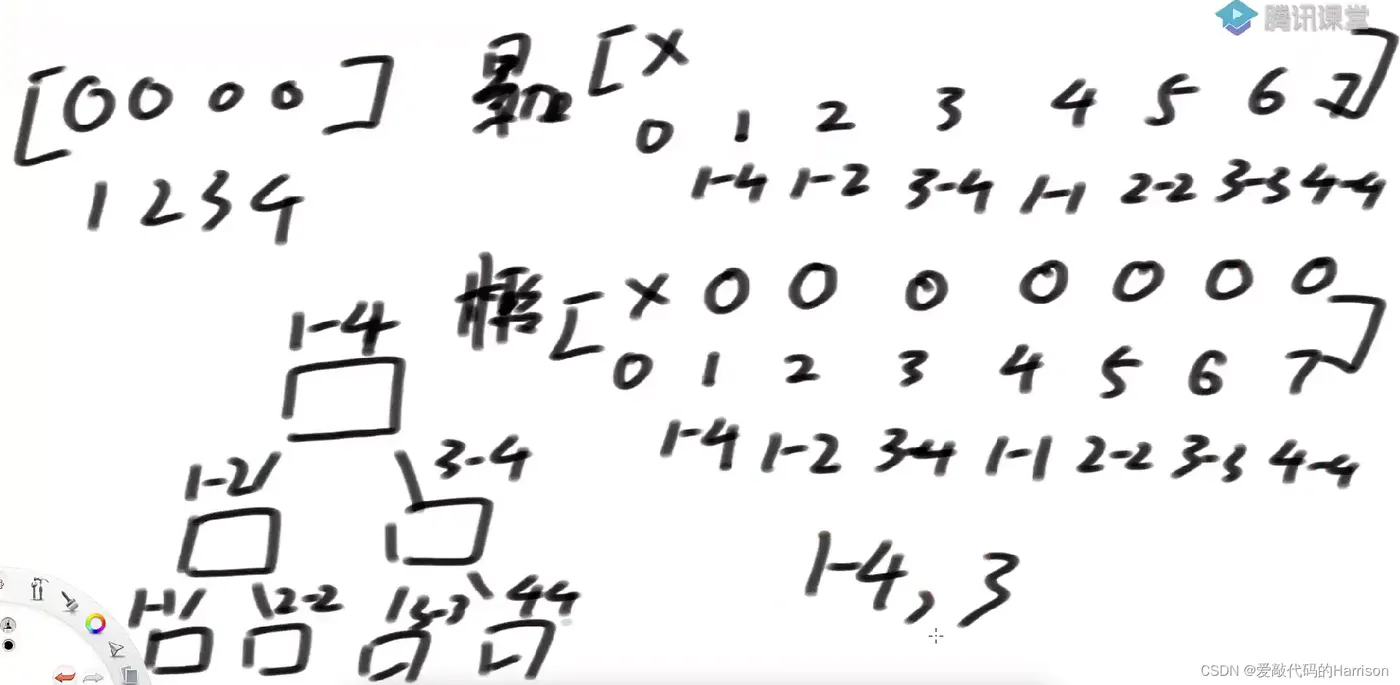 腾讯课堂
[0 0 0 0]
1 2 3 4
累加 [X
0 1 2 3 4 5 6 7]
1-4 1-2 3-4 1-1 2-2 3-3 4-4
[X 0 0 0 0 0 0 0
0 1 2 3 4 5 6 7]
1-4 1-2 3-4 1-1 2-2 3-3 4-4
1-4
1-2 3-4
1-1 2-2 3-3 44
1-4, 3
CSDN @爱敲代码的Harrison